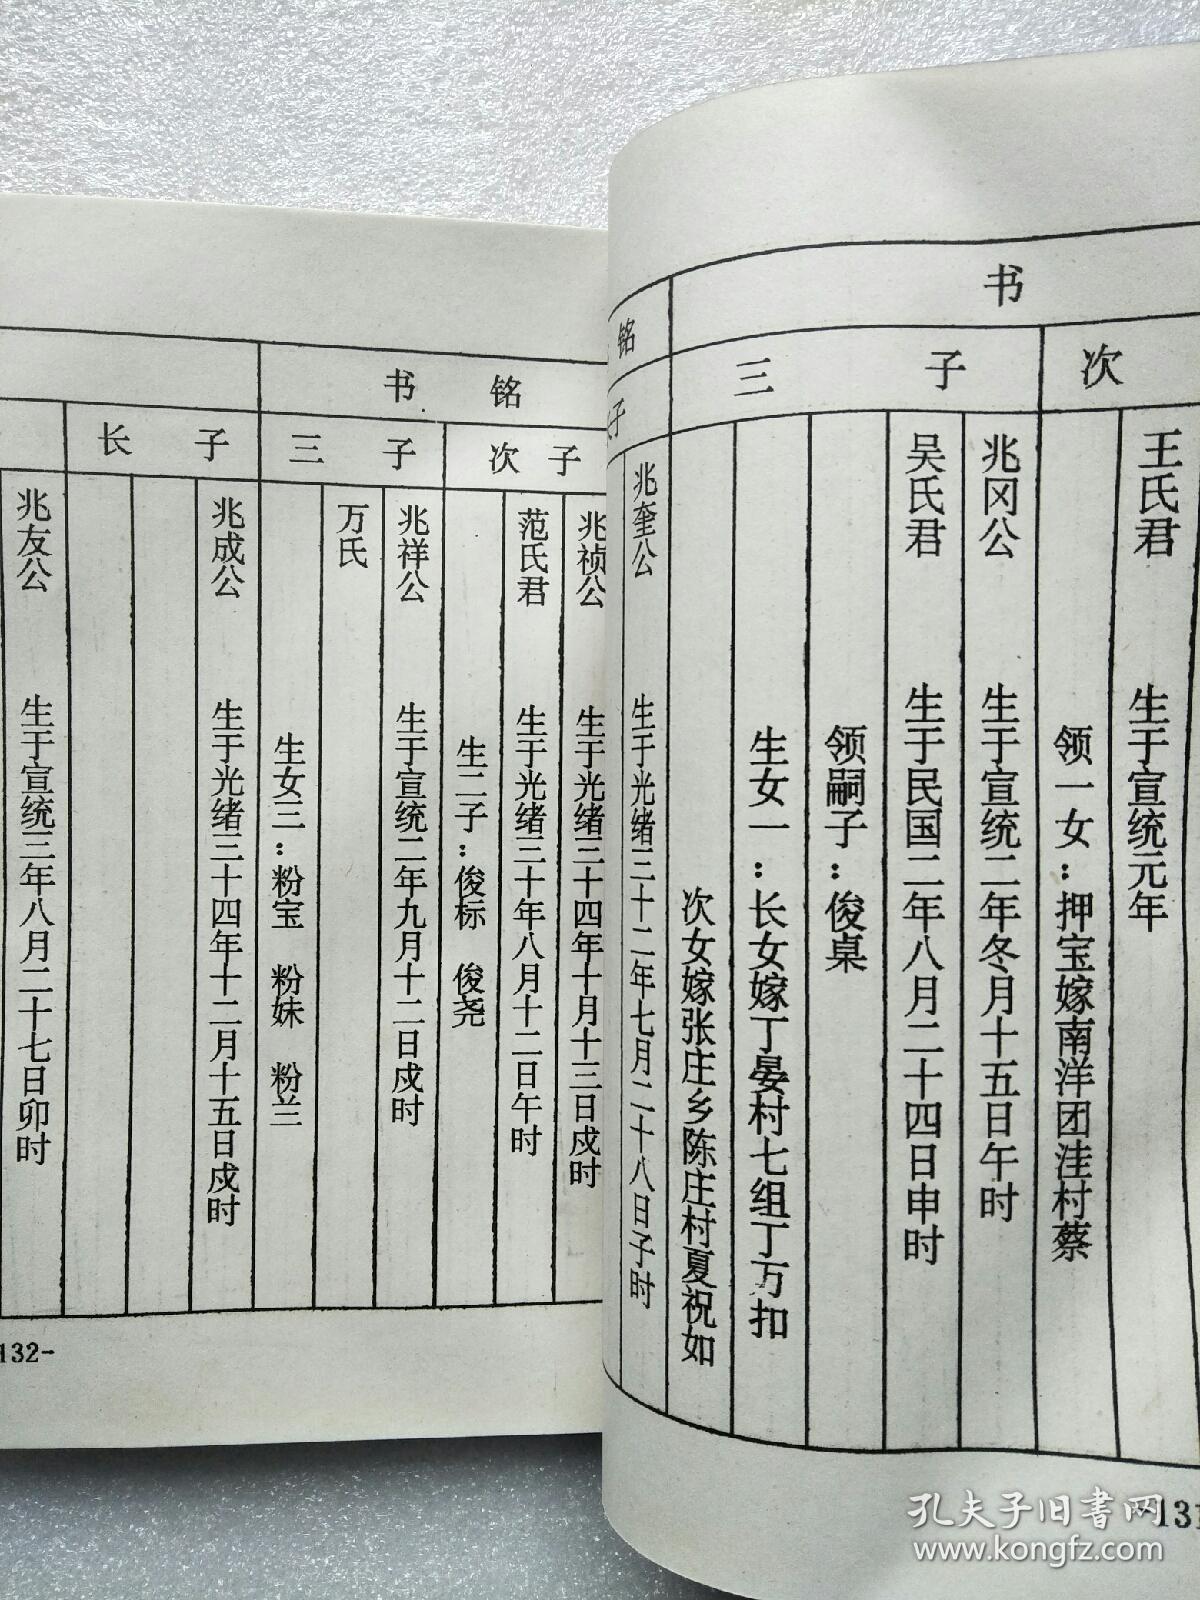 书
次
王氏君 生于宣统元年
领一女：押宝嫁南洋团洼村蔡
三子
兆冈公 生于宣统二年冬月十五日午时
吴氏君 生于民国二年八月二十四日申时
领嗣子：俊桌
生女一：长女嫁丁晏村七组丁万扣
次女嫁张庄乡陈庄村夏祝如
铭
子
兆奎公 生于光绪三十二年七月二十八日子时
131
书铭
次子
兆祯公 生于光绪三十四年十月十三日戌时
范氏君 生于光绪三十年八月十二日午时
生二子：俊标 俊尧
三子
兆祥公 生于宣统二年九月十二日戌时
万氏
生女三：粉宝 粉妹 粉兰
长子
兆成公 生于光绪三十四年十二月十五日戌时
兆友公 生于宣统三年八月二十七日卯时
132-
孔夫子旧書网
www.kongfz.com